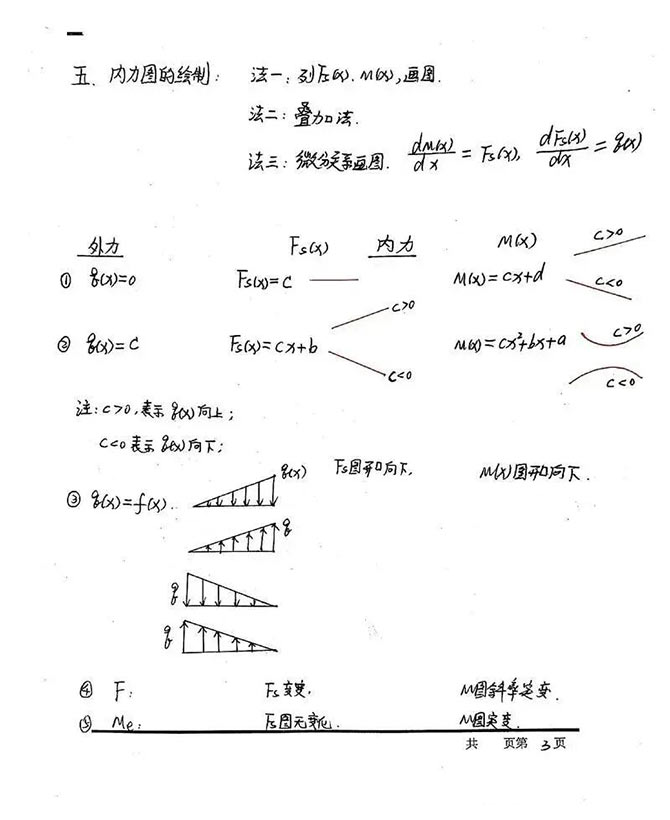 五、内力图的绘制: 法一:列Fs(x).M(x),画图.
法二:叠加法.
法三:微分关系画图. dM(x)/dx = Fs(x), dFs(x)/dx = q(x)
外力 Fs(x) 内力 M(x) c>0
① q(x)=0 Fs(x)=C M(x)=cx+d c<0
c>0
② q(x)=C Fs(x)=cx+b M(x)=cx²+bx+a c>0
c<0 c<0
注:c>0,表示q(x)向上;
c<0表示q(x)向下;
③ q(x)=f(x). q(x) Fs图开口向下, M(x)图开口向下.
q
q
q
④ F: Fs突变, M图斜率突变.
⑤ Me: Fs图无变化. M图突变.
共 页第 3 页